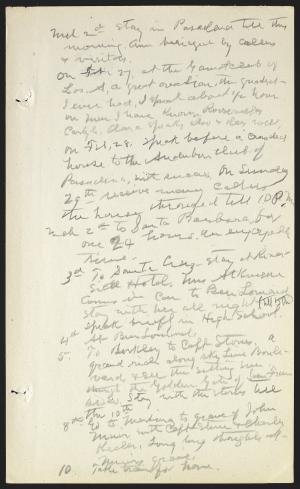 Mch 2d Stay in Pasadena till this
morning. Am besieged by callers
& visitors.
On Feb 27, at the Gamut club of
Los. A, a great ovation, the greatest
I ever had, I speak about ½ hour
on men I have known Roosevelt
Carlyle, Clara speaks also & does well
On Feb, 28. speak before a crowded
house to the Audubon club of
Pasadena, with success, On Sunday
29th receive many callers,
the house thronged till 10 P.M.
Mch 2d to Santa Barbara, for
one 24 hours. An enjoyable
time.
3d To Santa Cruz. Stay at River
Side Hotel. Mrs
Comes in Car to Ben Lomond
Stay with her all night
4th speak briefly in High School
at Ben Lomond.
5. To Berkley to Capt a
grand ride along sky line Boule-
vard, & see the setting sun
through the Golden Gate of San Fran
cisco. Stay with the till
the 10th
8th Go to to grave of John
Muir with & Charley
Keeler, Long long thoughts at
Muir's grave.
10. Take train for home.